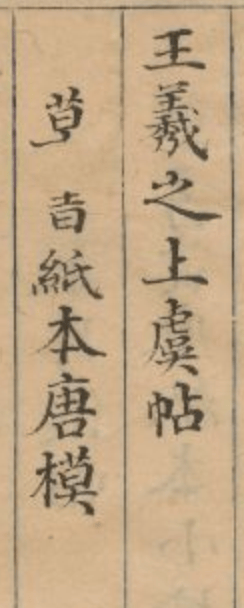 王羲之上虞帖
草 㫖紙本唐模